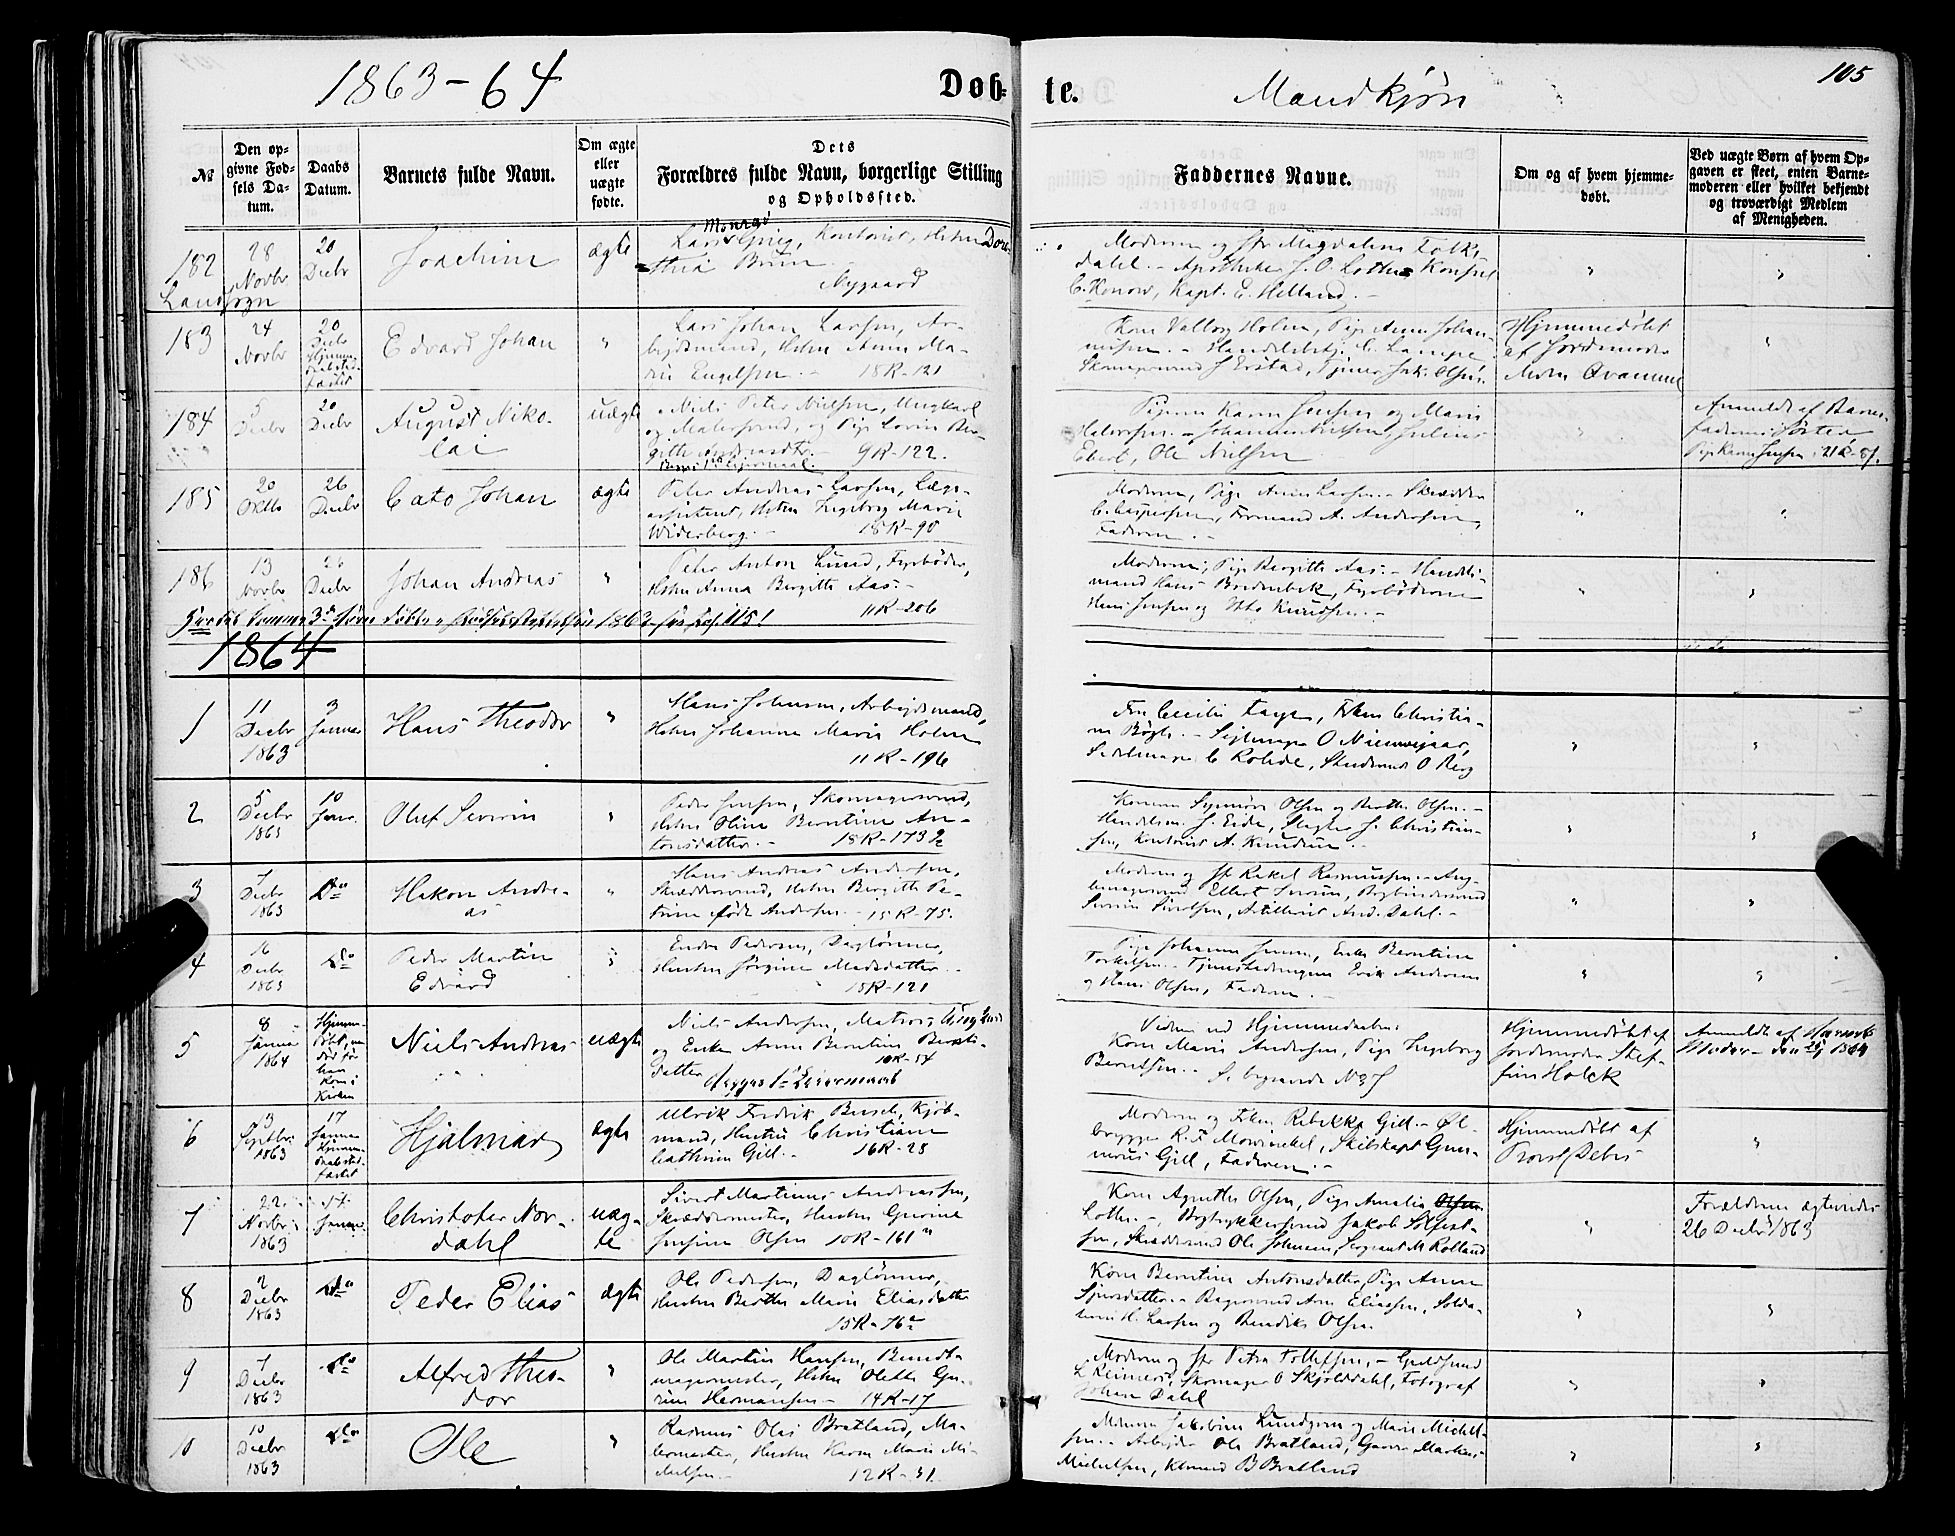 1863-64
Døb-
te.
Mandkjøn
105
№
Den op-
givne Fød-
sels Da-
tum.
Daabs
Datum.
Barnets fulde Navn.
Om ægte
eller
uægte
fødte.
Dets
Forældres fulde Navn, borgerlige Stilling
og Opholdssted.
Faddernes Navne.
Om og af hvem hjemme-
døbt.
Ved uægte Børn af hvem Op-
gaven er skeet, enten Barne-
moderen eller hvilket bekjendt
og troværdigt Medlem
af Menigheden.
182
28
Novbr
20
Decbr
Joachim
ægte
Lars Grieg, Kontorist, Hstru Doro-
thea Bruun
Nygaard
Moderen og Fr Magdalena
dahl. - Apotheker J. O. Lothe Konsul
C. Konow, Kapt. E. Helland. -
"
"
Landsogn
183
24
Novbr
20
Decbr
Hjemme-
daab stad-
fæstet
Edvard Johan
"
Lars Johan Larsen, Ar-
beidsmand, Hstru Anne Ma-
rie Engelsen. - 18R-121
Kone Valborg Holm, Pige Anne Johan-
nesen. - C. Lampe
Skomagersvend J. Erstad, Tjener Jak. Olsen
Hjemmedøbt
af Jordmoder
"
184
5
Decbr
20
Decbr
August Niko-
lai
uægte
Niels Peter Nielsen, Ungkarl
og Malersvend, og Pige Lovise Ber-
gitte 9R-122.
Pigerne Karen Jensen og Maria
Halvorsen. - Johannes Nielsen, Julius
Ebert, Ole Nielsen
"
Anmeldt af Barne-
faderens Søster
Pige Karen Jensen, 21R-81.
185
20
Oktb
26
Decbr
Cato Johan
ægte
Peter Andreas Larsen, Læge-
assistent, Hstru Ingeborg Marie
Widerberg. - 18R-90
Moderen, Pige Anne Larsen. - Skrædder
C. Caspersen, Formand A. Andersen,
Faderen. -
"
"
186
13
Novbr
26
Decbr
Johan Andreas
"
Peter Anton Lund, Fyrbøder,
Hstru Anna Bergitte Aas. -
11R-206
Moderen, Pige Bergitte Aas. - Handels-
mand Hans Bredenbek, Fyrbøderne
Hans Jensen og Otto Knudsen. -
"
"
1864
1
11
Decbr
1863
3
Januar
Hans Theodor
"
Hans Johnsen, Arbeidsmand,
Hstru Johanne Marie Holm
11R-196
Fru Cecilie Faye, Frkn Christia-
ne Bøgh. - Seglmager O Nieuwejaar,
Sadelmager C Rohde, Studerende O Berg
"
"
2
5
Decbr
1863
10
Janr.
Oluf Severin
"
Peder Jensen, Skomagersvend,
Hstru Oline Berntine An-
tonsdatter. - 18R-173½
Konerne Synnøve Olsen og Berthe Olsen. -
Handelsm. J. Eide, Slagter J. Christian-
sen, Kontorist A. Knudsen. -
"
"
3
7
Decbr
1863
Do
Hakon Andre-
as
"
Hans Andreas Andersen,
Skræddersvend, Hstru Bergitte Pe-
trine født Andersen. - 15R-75.
Moderen og Fr Rakel Rasmussen. -
Ellert Iversen, Bogbindersvend
Severin Sivertsen, Artillerist And. Dahl. -
"
"
4
16
Decbr
1863
Do
Peder Martin
Edvard
"
Endre Pedersen, Daglønner,
Hustru Jørgine Madsdatter. -
18R-121
Pige Johanne Jensen, Enke Berntine
Torkilsen. - Tjenestedrengene Erik Andersen
og Hans Olsen, Faderen. -
"
"
5
8
Januar
1864
Hjemme-
døbt, men
død før
han
kom i
Kirken
Niels Andreas
uægte
Niels Andersen, Matros,
og Enken Anne Berntine Bernts-
datter 10R-54
Begges 1ste Leiermaal
Vidner ved Hjemmedaaben:
Kone Maria Andersen, Pige Ingeborg
Berntsen. -
Hjemmedøbt af
Jordmoder Stef-
fine Holck
Anmeldt af Barnets
Moder - den 1864
6
13
Septbr.
1863
17
Januar
Hjemme-
daab stad-
fæstet
Hjalmar
ægte
Ulrik Fredrik Busch, Kjøb-
mand, Hustru Christiane
Cathrine Gill. - 16R-28
Moderen og Frkn Rebekka Gill. - Øl-
brygger R. F Mowinckel, Skibskapt Gun-
nerus Gill, Faderen. -
Hjemmedøbt af
Provst Debes
"
7
22
Novbr
1863
17
Januar
Christofer Nor-
dahl
uæg-
te
Sivert Martinus Andreassen,
Skræddermester, Hustru Gurine
Jensine Olsen 10R-161
Kone Agnethe Olsen, Pige Amalia Olsen
Lothe. -, Bogtrykkersvend Jakob Solfest-
sen, Skræddersvend Ole Johnsen, Sergeant M Rolland
"
Forældrene ægteviede
26 Decbr 1863
8
2
Decbr
1863
Do
Peder Elias
ægte
Ole Pedersen, Daglønner,
Hustru Berthe Marie Eliasdatter
15R-76
Kone Berntine Antonsdatter, Pige Anne
Sjursdatter. - Bagersvend Arne Eliassen, Solda-
terne H. Larsen og Bendiks Olsen.
"
"
9
7
Decbr
1863
Do
Alfred Theo-
dor
"
Ole Martin Hansen, Bundt-
magermester, Hstru Olette Gu-
rine Hermansen - 14R-17
Moderen og Fr Petra Tollefsen, - Guldsmed
L Reimers, Skomager O Skjolddahl, Fotograf
Johan Dahl
"
"
10
10
Decbr
1863
Do
Ole
"
Rasmus Olai Bratland, Ma-
lermester, Hustru Karen Marie Mi-
chelsen. - 12R-31
Jakobine Lundgren og Marie Michel-
sen. - Arbeider Ole Bratland, Garver Markus
Michelsen, B Bratland
"
"